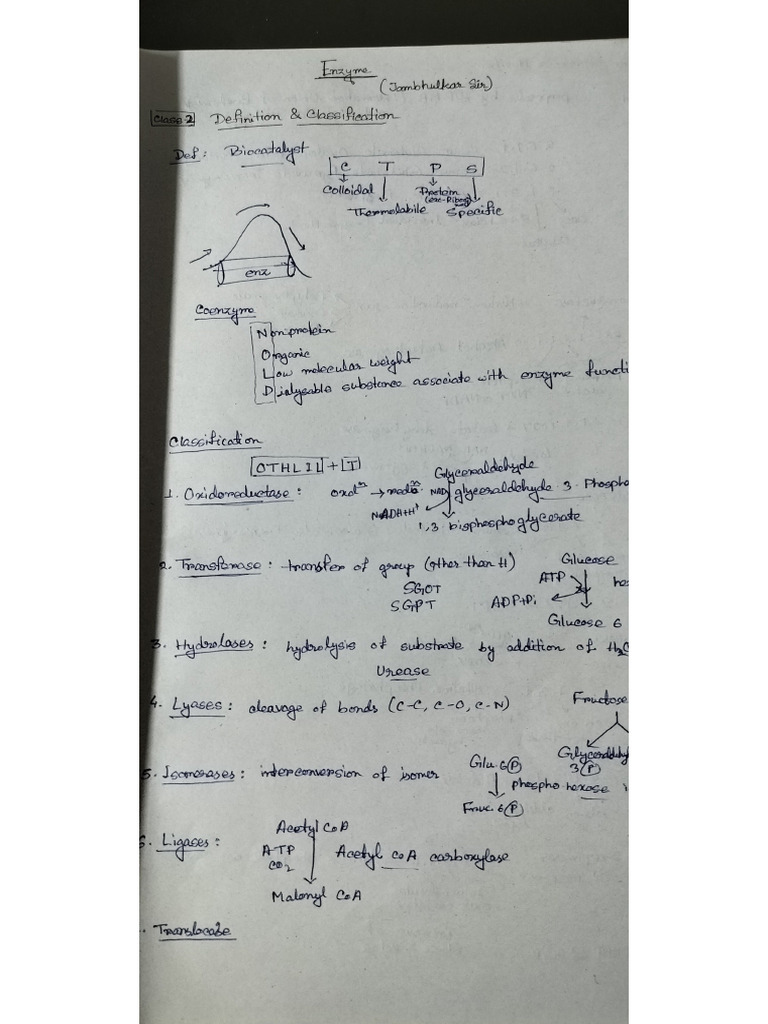 Enzyme
(Jambhulkar Sir)
Class-2 Definition & Classification
Def : Biocatalyst
C T P S
Colloidal Protein
(exc-Riboz)
Thermolabile Specific
enz
Coenzyme
Nonprotein
Organic
Low molecular weight
Dialyseable substance associate with enzyme functi
Classification
OTHLIL + T
Glyceraldehyde
1. Oxidoreductase : oxdⁿ → redoⁿ NAD glyceraldehyde 3-Phospho
NADH+H⁺
1,3 bisphosphoglycerate
2. Transferase : transfer of group (other than H) Glucose
ATP
SGOT
SGPT ADP+Pi
Glucose 6
3. Hydrolases : hydrolysis of substrate by addition of H₂O
Urease
4. Lyases : cleavage of bonds (C-C, C-O, C-N) Fructose
Glyceraldehy
3 P
5. Isomerases : interconversion of isomer Glu. 6 P
phospho hexose i
Fruc. 6 P
6. Ligases : Acetyl CoA
ATP
CO₂ Acetyl CoA carboxylase
Malonyl CoA
Translocase